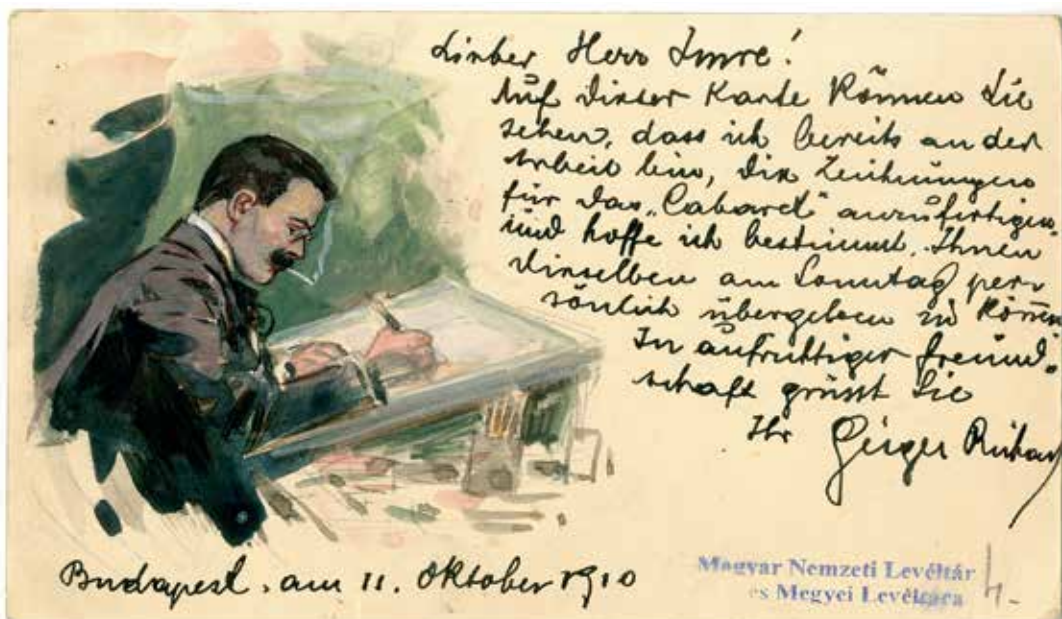 Lieber Herr Imre!
Auf dieser Karte können Sie
sehen, dass ich bereits an der
Arbeit bin, die Zeichnungen
für das „Cabaret“ anzufertigen,
und hoffe ich bestimmt, Ihnen
dieselben am Sonntag per-
sönlich übergeben zu können.
In aufrichtiger Freund-
schaft grüsst Sie
Ihr Geiger Richard
Budapest, am 11. Oktober 1910
Magyar Nemzeti Levéltár
Megyei Levéltára
4.